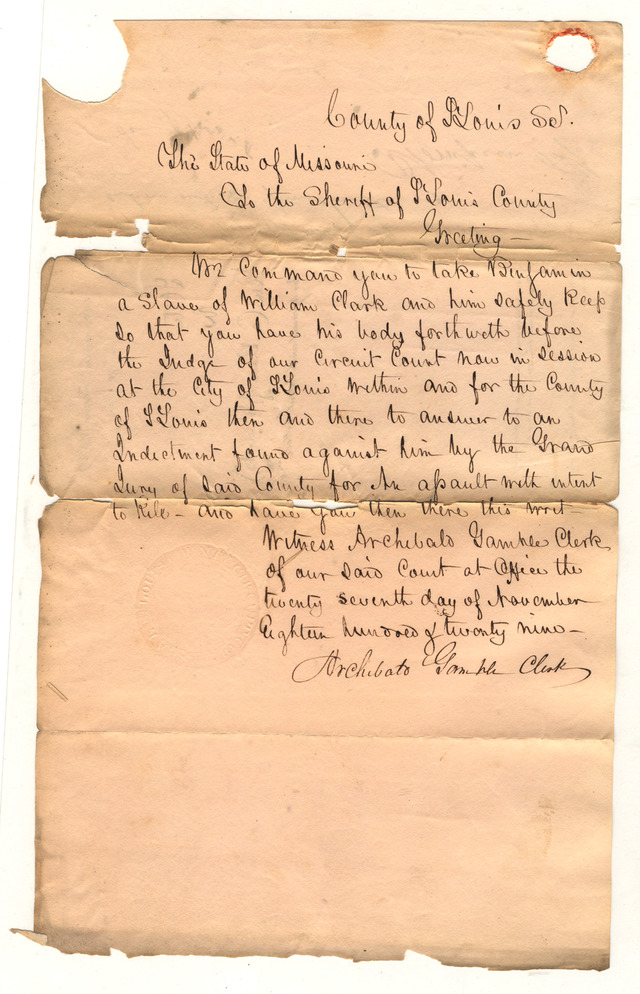 County of St Louis Sct.
The State of Missouri
To the Sheriff of St Louis County
Greeting —
We Command you to take Benjamin
a Slave of William Clark and him safely keep
so that you have his body forthwith before
the Judge of our Circuit Court now in session
at the City of St Louis within and for the County
of St Louis then and there to answer to an
Indictment found against him by the Grand
Jury of said County for An assault with intent
to Kill – and have you then there this writ –
Witness Archibald Gamble Clerk
of our said Court at Office the
twenty seventh day of November
Eighteen hundred & twenty nine –
Archibald Gamble Clerk